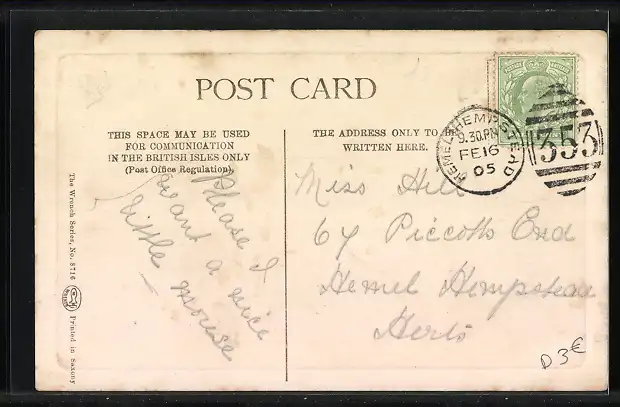 POST CARD
THIS SPACE MAY BE USED
FOR COMMUNICATION
IN THE BRITISH ISLES ONLY
(Post Office Regulation).
Please I
want a nice
little mouse
THE ADDRESS ONLY TO
WRITTEN HERE.
HEMEL HEMPSTEAD
9.30.PM
FE16
05
353
Miss Hill
64 Piccotts End
Hemel Hempstead
Herts
D 3€
The Wrench Series, No. 8716
Printed in Saxony